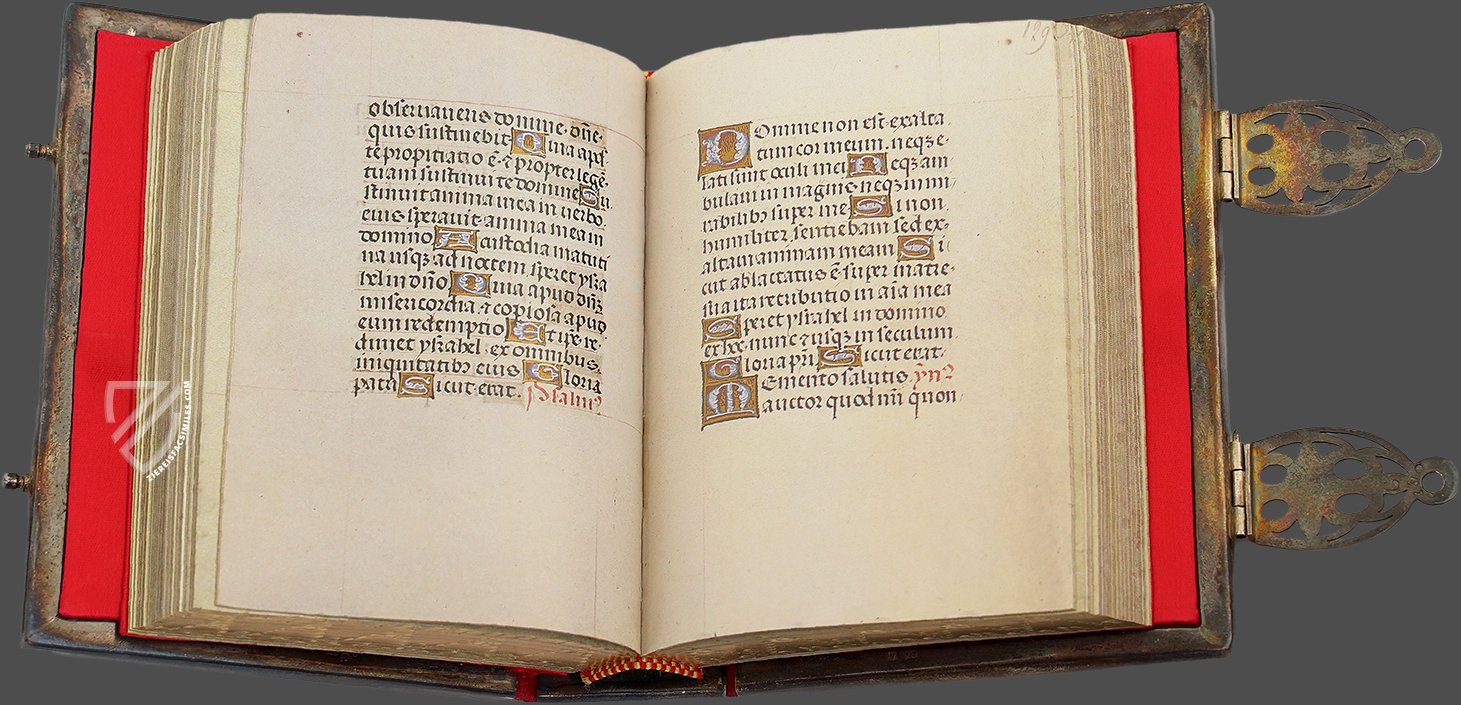 observaveris domine. dn̄e
quis sustinebit Quia apd̄
te propitiatio ē. ⁊ propter legē
tuam sustinui te domine Su
stinuit anima mea in verbo
eius speravit anima mea in
domino A custodia matuti
na usqꝫ ad noctem speret ysra
hel in dn̄o Quia apud dn̄ꝫ
misericordia. ⁊ copiosa apud
eum redemptio Et ip̄e re
dimet ysrahel. ex omnibus
iniquitatibꝫ eius Gloria
patri Sicut erat. Psalmꝰ
Domine non est exalta
tum cor meum. neqꝫ e
lati sunt oculi mei Neqꝫ am
bulavi in magnis neqꝫ in mi
rabilibꝫ super me Si non
humiliter sentiebam sed ex
altavi animam meam Si
cut ablactatus ē super matre
sua ita retributio in aīa mea
Speret ysrahel in domino
ex hoc nunc ⁊ usqꝫ in seculum
Gloria pr̄i Sicut erat.
Memento salutis ẏnꝰ
auctor quod nr̄i quon
129
ZIEREISFACSIMILES.COM